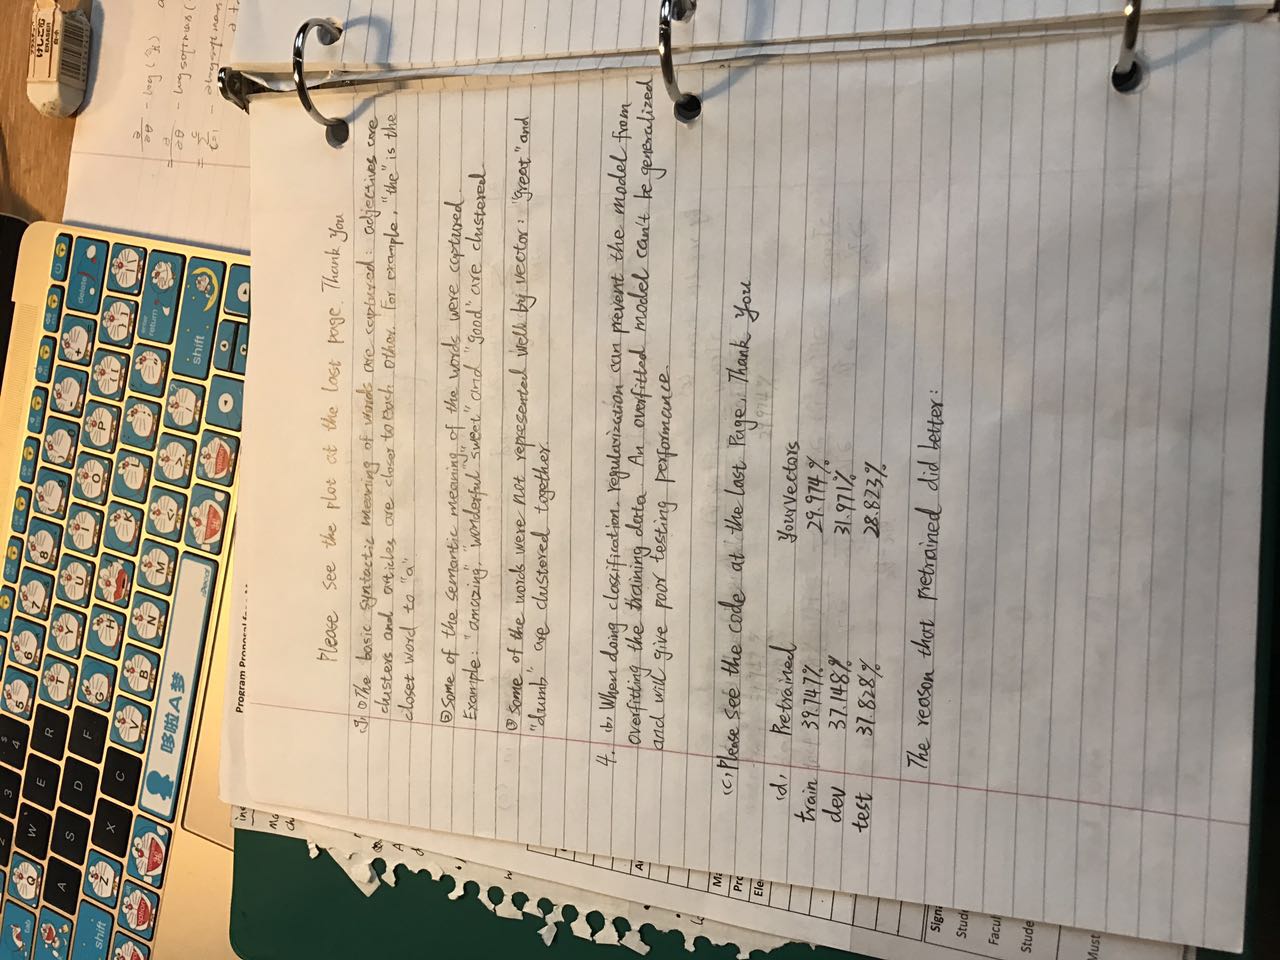 Please see the plot at the last page. Thank You
g, ① The basic syntactic meaning of words are captured: adjectives are
clusters and articles are closer to each other. For example, "the" is the
closet word to "a".
② Some of the semantic meaning of the words were captured.
Example: "amazing" "wonderful" "sweet" and "good" are clustered
③ Some of the words were not represented well by vector: "great" and
"dumb" are clustered together.
4. b, When doing classification, regularization can prevent the model from
overfitting the training data. An overfitted model can't be generalized
and will give poor testing performance.
(c, Please see the code at the last Page. Thank You
(d, Pretrained YourVectors
train 39.747% 29.974%
dev 37.148% 31.971%
test 37.828% 28.823%
The reason that pretrained did better:
Program Proposal
けしごむ
ERASER
- log(
- log softmax(
delete
return
enter
shift
哆啦A梦
shift
Q W E R T Y U O P
A S D F G H L
Z X C V B N M
2 3 4 5 6 7 8
Signa
Stud
Facul
Stude
Must
Pro
Ele